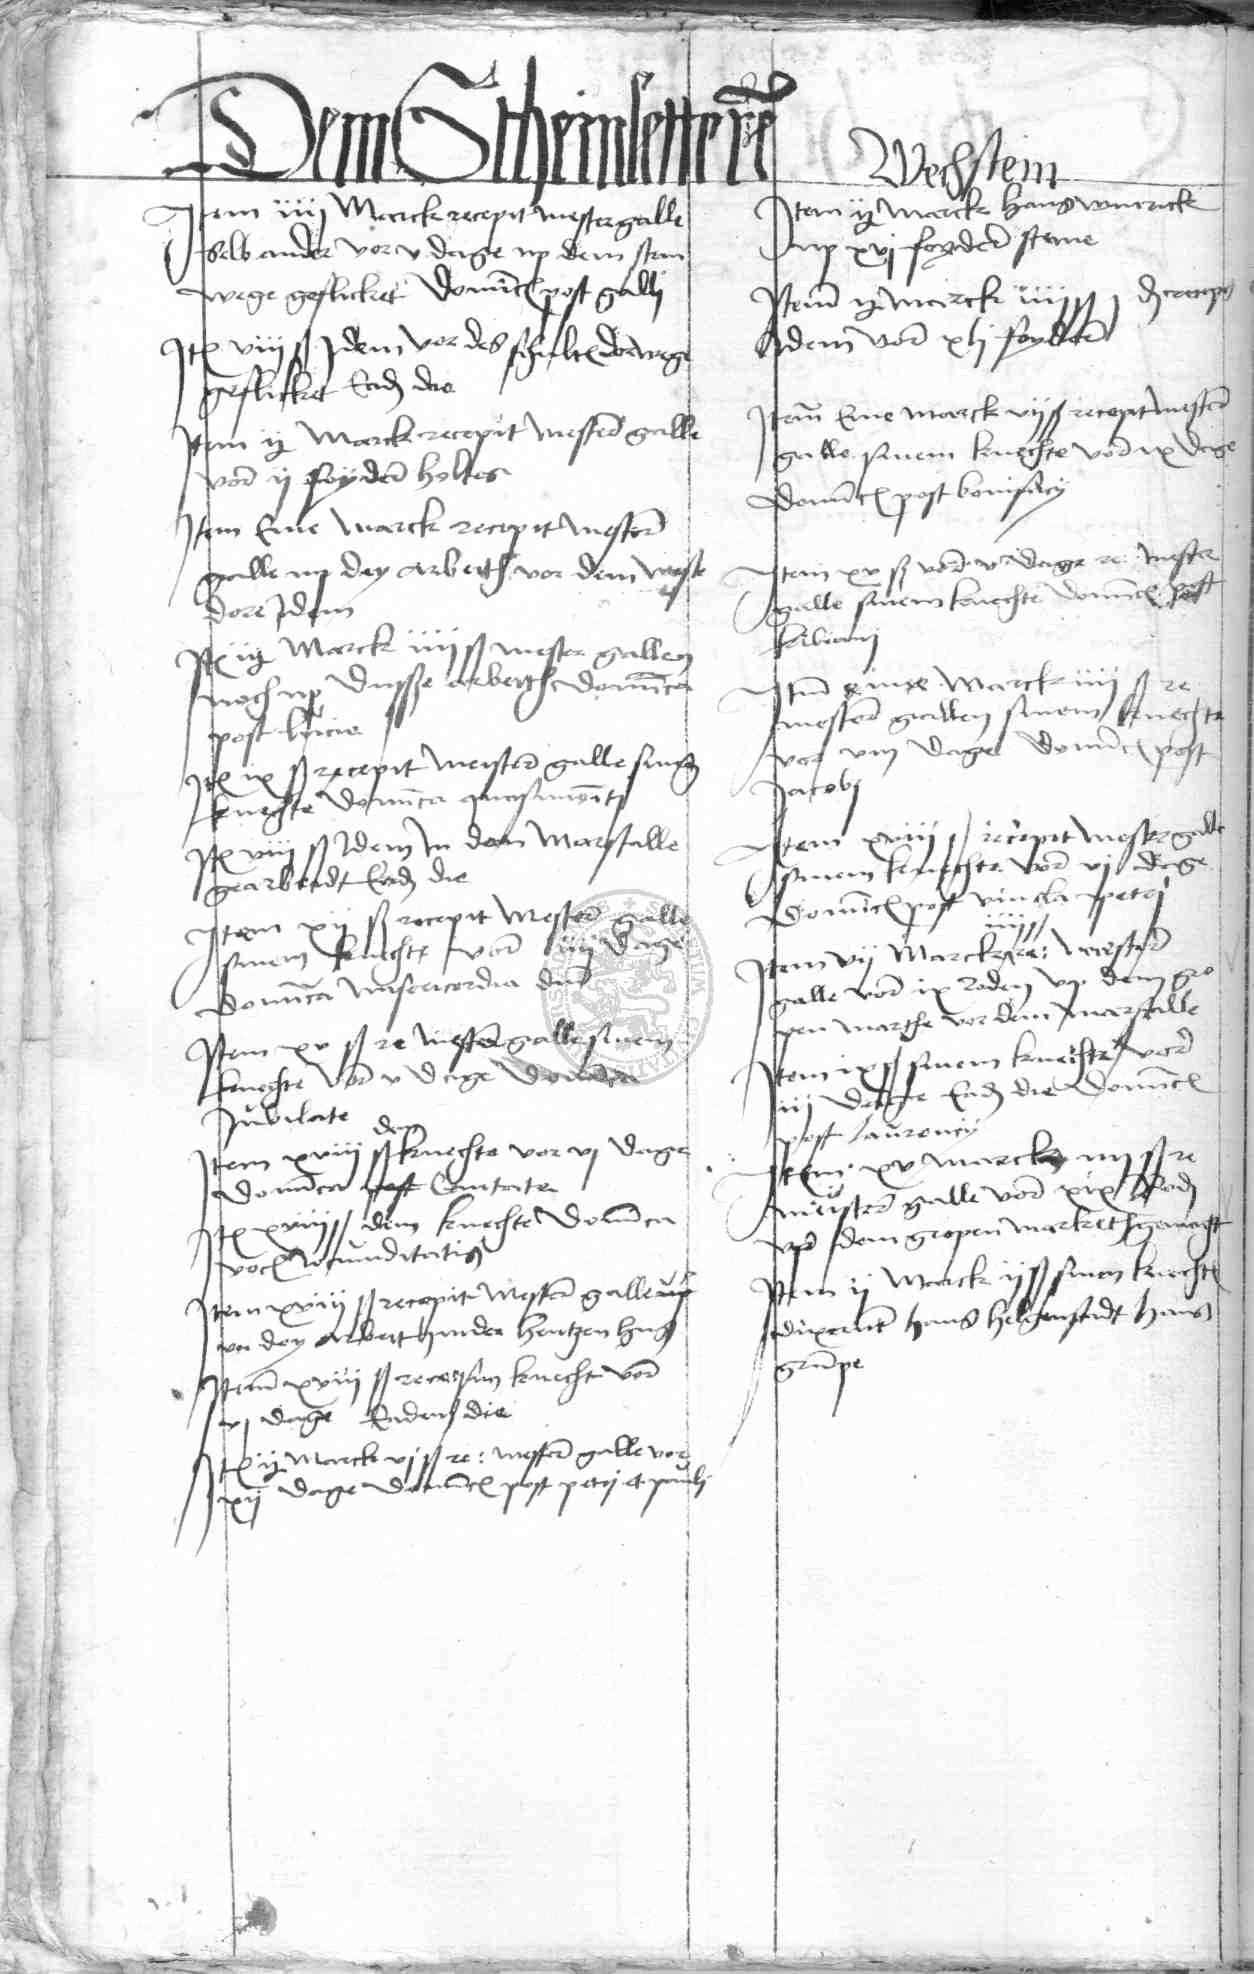 Dem Stheinsettere
Item iiij Marck recepit mester galle
selb ander vor v dage up dem stein
wege geflicket Dominica post galli
Itē viij ß Idem vor des
geflicket Eadē die
Item ij Marck recepit mester galle
vor ij foyder holtes
Item Eine Marck recepit mester
galle up dey arbeith vor dem weste
dore Idem
Itē iij Marck iiij ß mester gallen
noch up dusse arbeith dominica
post lucie
Itē ix ß recepit meister galle sing
knechte dominca quasimoniti
Itē viij ß Idem In dem Marstalle
gearbeidt Eadē die
Item xij ß recepit mester galle
sinem knechte vor iiij dage
dominca misericordia dni
Item xv ß re mester galle sinem
knechte vor v dage dominca
Jubilate
Item xviij ß dem knechte vor vj dage
dominca post Cantate
Itē xviij ß dem knechte dominca
voce iocunditatis
Item xxiiij ß recepit mester galle up
vn dey arbeit hinder hentzen hus
Item xviij ß recepit sin knecht vor
vj dage Eadem die
Itē ij Marck vj ß re: mester galle vor
xij dage dominca post petri et pauli
Wechstein
Item ij Marck hans winrick
up xvj foyder steine
Item ij Marck iiij ß j d recepit
Idem vor xlj foyder
Item Eine marck vij ß recepit mester
galle sinem knechte vor ix dage
dominca post bonifacij
Item xv ß vor v dage re mester
galle sinem knechte dominca post
kiliani
Item eine Marck iiij ß re
mester gallen sinem knechte
vor viij dage dominca post
Jacobi
Item xviij ß recepit mester galle
sinem knechte vor vj dage
Dominca post vincla petri
iiij ß
Item vij Marck re: mester
galle vor ix roden up dem gro
pen marckte vor dem marstalle
Item ix ß sinem knechte vor
iij dage Eadē die dominca
post laurencij
Item xv marck iiij ß re
meister galle vor xix rodē
up dem gropen marketh gemacht
Item ij Marck ij ß sinen knechtē
dixerunt hans helgenstadt hans
grumpe